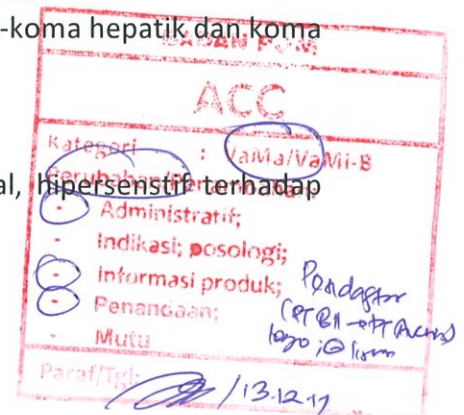 -koma hepatik dan koma
BADAN POM
ACC
Kategori : VaMa/VaMi-B
al, hipersenstif terhadap
- Administratif;
- Indikasi; posologi;
- Informasi produk;
- Penandaan;
- Mutu
Paraf/Tgl: /13.12.17
logo